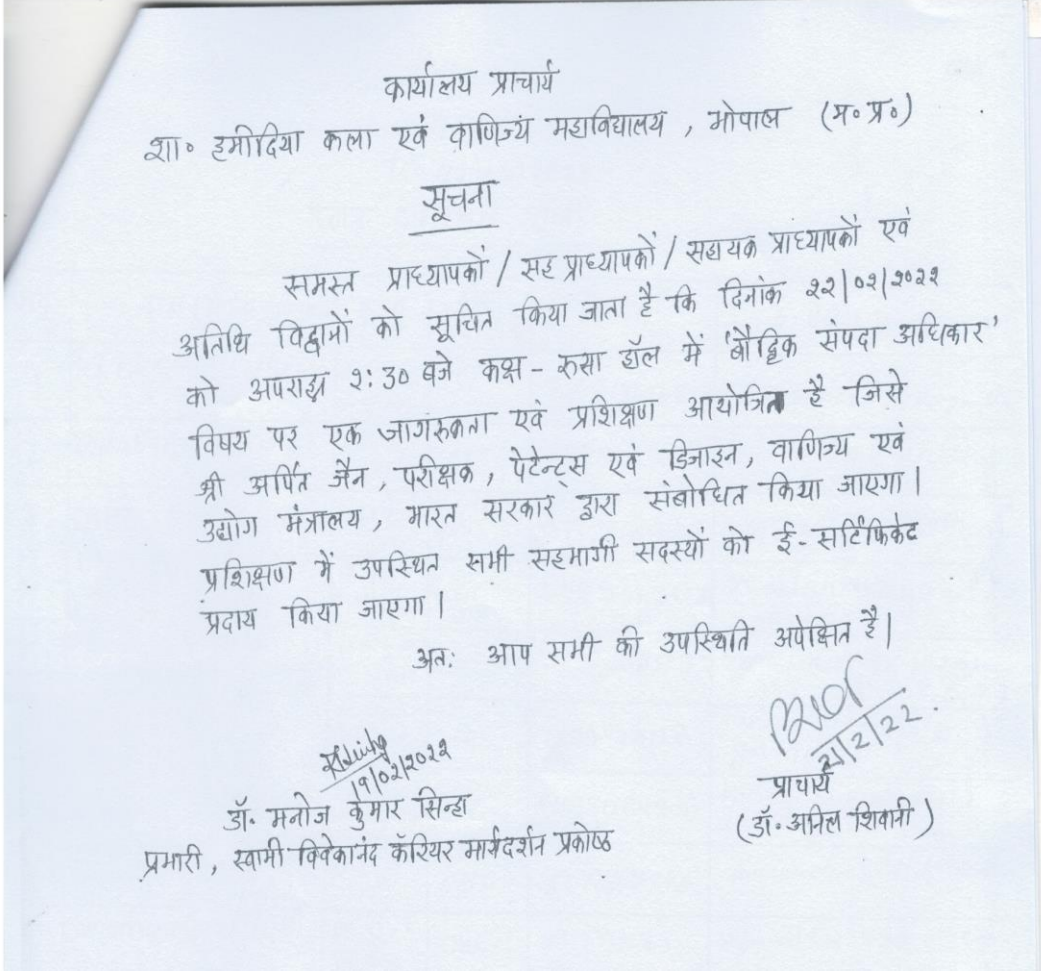 कार्यालय प्राचार्य
शा० हमीदिया कला एवं वाणिज्यं महाविद्यालय , भोपाल (म० प्र०)
सूचना
समस्त प्राध्यापकों / सह प्राध्यापकों / सहायक प्राध्यापकों एवं
अतिथि विद्वानों को सूचित किया जाता है कि दिनांक 22/02/2022
को अपराह्न 2:30 बजे कक्ष - रूसा हॉल में 'बौद्धिक संपदा अधिकार'
विषय पर एक जागरूकता एवं प्रशिक्षण आयोजित है जिसे
श्री अर्पित जैन , परीक्षक , पेटेन्ट्स एवं डिजाइन , वाणिज्य एवं
उद्योग मंत्रालय , भारत सरकार द्वारा संबोधित किया जाएगा |
प्रशिक्षण में उपस्थित सभी सहभागी सदस्यों को ई- सर्टिफिकेट
प्रदाय किया जाएगा |
अतः आप सभी की उपस्थिति अपेक्षित है |
19/02/2022
21/2/22.
डॉ. मनोज कुमार सिन्हा
प्रभारी , स्वामी विवेकानंद कॅरियर मार्गदर्शन प्रकोष्ठ
प्राचार्य
(डॉ. अनिल शिवानी)